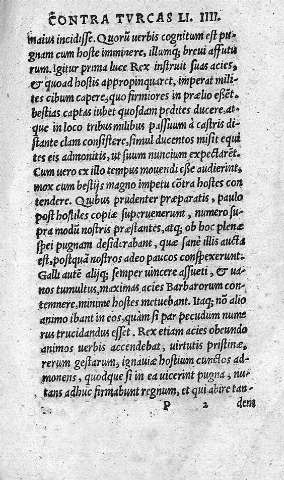 CONTRA TVRCAS LI. IIII.
maius incidisse. Quorũ uerbis cognitum est pu⸗
gnam cum hoste imminere, illumq; breui affutu
rum. Igitur prima luce Rex instruit suas acies,
& quoad hostis appropinquaret, imperat mili⸗
tes cibum capere, quo firmiores in prælio essẽt.
bestias captas iubet quosdam pedites ducere, at⸗
que in loco tribus milibus passuum à castris di⸗
stante clam consistere, simul ducentos misit equi
tes eis admonitis, ut suum nuncium expectarẽt.
Cum uero ex illo tempus mouendi esse audierint,
mox cum bestijs magno impetu cõtra hostes con
tendere. Quibus prudenter præparatis, paulo
post hostiles copiæ superuenerunt, numero su⸗
pra modũ nostris præstantes, atq; ob hoc plenæ
spei pugnam desiderabant, quæ sanè illis aucta
est, postquã nostros adeo paucos conspexerunt.
Galli autẽ alijq; semper uincere assueti, & ua⸗
nos tumultus, maximas acies Barbarorum con⸗
temnere, minime hostes metuebant. Itaq; nõ alio
animo ibant in eos, quàm si par pecudum nume
rus trucidandus esset. Rex etiam acies obeundo
animos uerbis accendebat, uirtutis pristinæ,
rerum gestarum, ignauiæ hostium cunctos ad⸗
monens, quodque si in ea uicerint pugna, nu⸗
tans adhuc firmabunt regnum, et qui abire tan⸗
P 2 dem